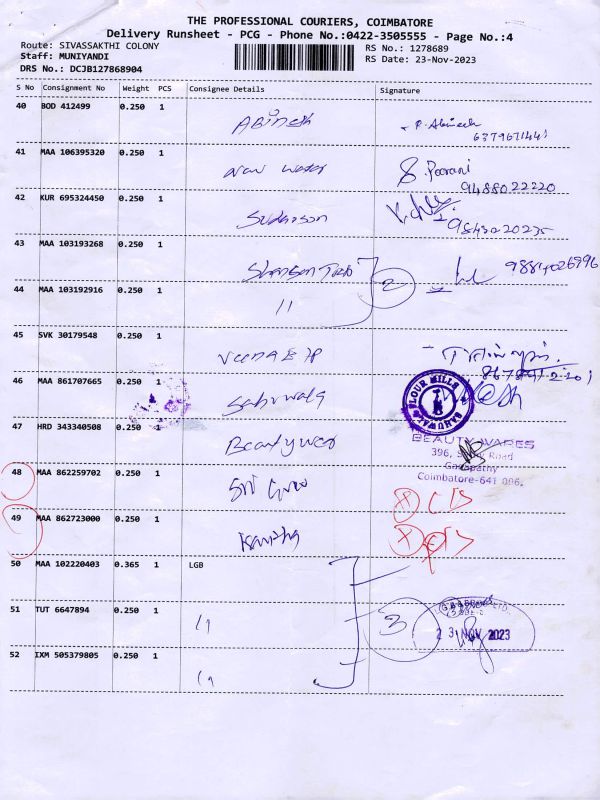 THE PROFESSIONAL COURIERS, COIMBATORE
Delivery Runsheet - PCG - Phone No.:0422-3505555 - Page No.:4
Route: SIVASSAKTHI COLONY
RS No.: 1278689
Staff: MUNIYANDI
RS Date: 23-Nov-2023
DRS No.: DCJB127868904
S No Consignment No Weight PCS Consignee Details Signature
40 BOD 412499 0.250 1
Abinesh
P. Abinesh
41 MAA 106395320 0.250 1
S. Poorani
9488022220
42 KUR 695324450 0.250 1
Sudarson
9843220235
43 MAA 103193268 0.250 1
9884026996
2
44 MAA 103192916 0.250 1
"
45 SVK 30179548 0.250 1
46 MAA 861707665 0.250 1
FLOUR MILLS
47 HRD 343340508 0.250 1
BEAUTY WARES
396, Road
Ganapathy
Coimbatore-641 006.
48 MAA 862259702 0.250 1
49 MAA 862723000 0.250 1
50 MAA 102220403 0.365 1 LGB
51 TUT 6647894 0.250 1
"
3
23 NOV 2023
52 IXM 505379805 0.250 1
"